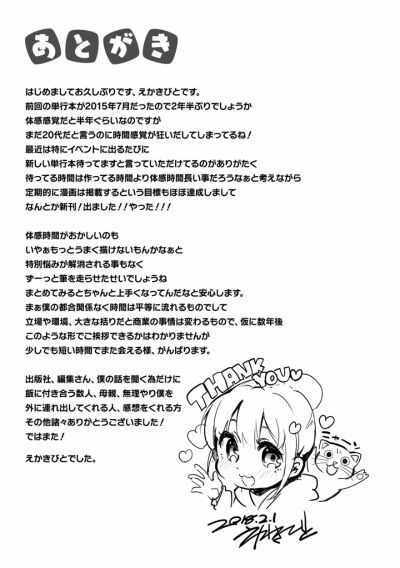 あとがき
はじめましてお久しぶりです、えかきびとです。
前回の単行本が2015年7月だったので2年半ぶりでしょうか
体感感覚だと半年ぐらいなのですが
まだ20代だと言うのに時間感覚が狂いだしてしまってるね！
最近は特にイベントに出るたびに
新しい単行本待ってますと言っていただけてるのがありがたく
待ってる時間は作ってる時間より体感時間長い事だろうなぁと考えながら
定期的に漫画は掲載するという目標もほぼ達成しまして
なんとか新刊！出ました！！やった！！！
体感時間がおかしいのも
いやぁもっとうまく描けないもんかなぁと
特別悩みが解消される事もなく
ずーっと筆を走らせたせいでしょうね
まとめてみるとちゃんと上手くなってんだなと安心します。
まぁ僕の都合関係なく時間は平等に流れるものでして
立場や環境、大きな括りだと商業の事情は変わるもので、仮に数年後
このような形でご挨拶できるかはわかりませんが
少しでも短い時間でまた会える様、がんばります。
出版社、編集さん、僕の話を聞く為だけに
飯に付き合う数人、母親、無理やり僕を
外に連れ出してくれる人、感想をくれる方
その他諸々ありがとうございました！
ではまた！
えかきびとでした。
THANK
YOU
ミャーン
2018.2.1
えかきびと